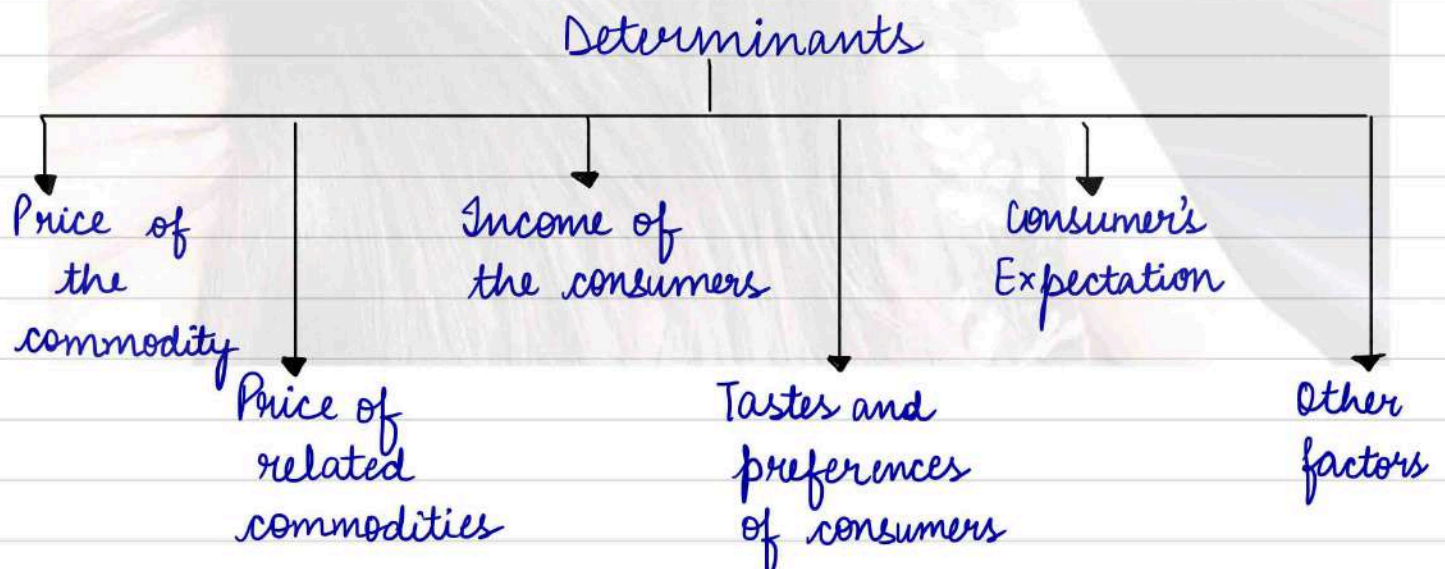 Determinants
Price of
the
commodity
Price of
related
commodities
Income of
the consumers
Tastes and
preferences
of consumers
Consumer's
Expectation
Other
factors